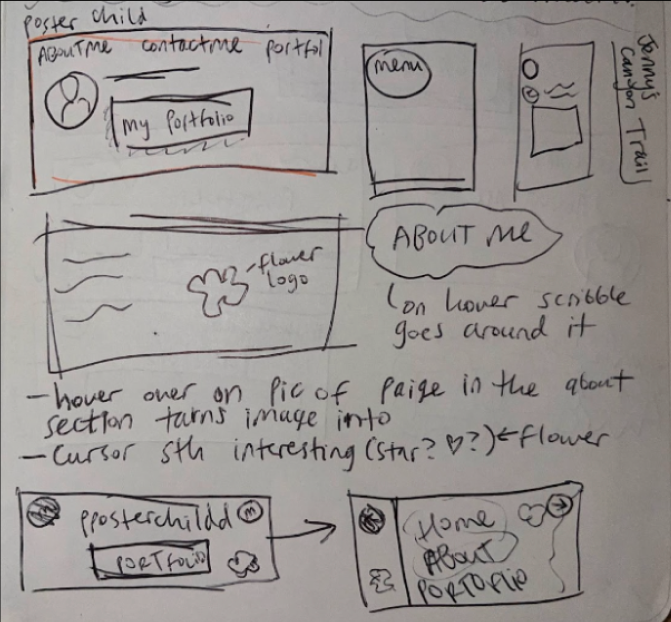 Poster child
ABOUT me contact me portfol
My Portfolio
menu
Jenny's
Canyon Trail
flower
logo
ABOUT me
on hover scribble
goes around it
- hover over on pic of Paige in the about
section turns image into
- Cursor sth interesting (star? ♡?) ← flower
pposterchildd m
PORTFOLIO
Home
ABOUT
PORTOFLIO